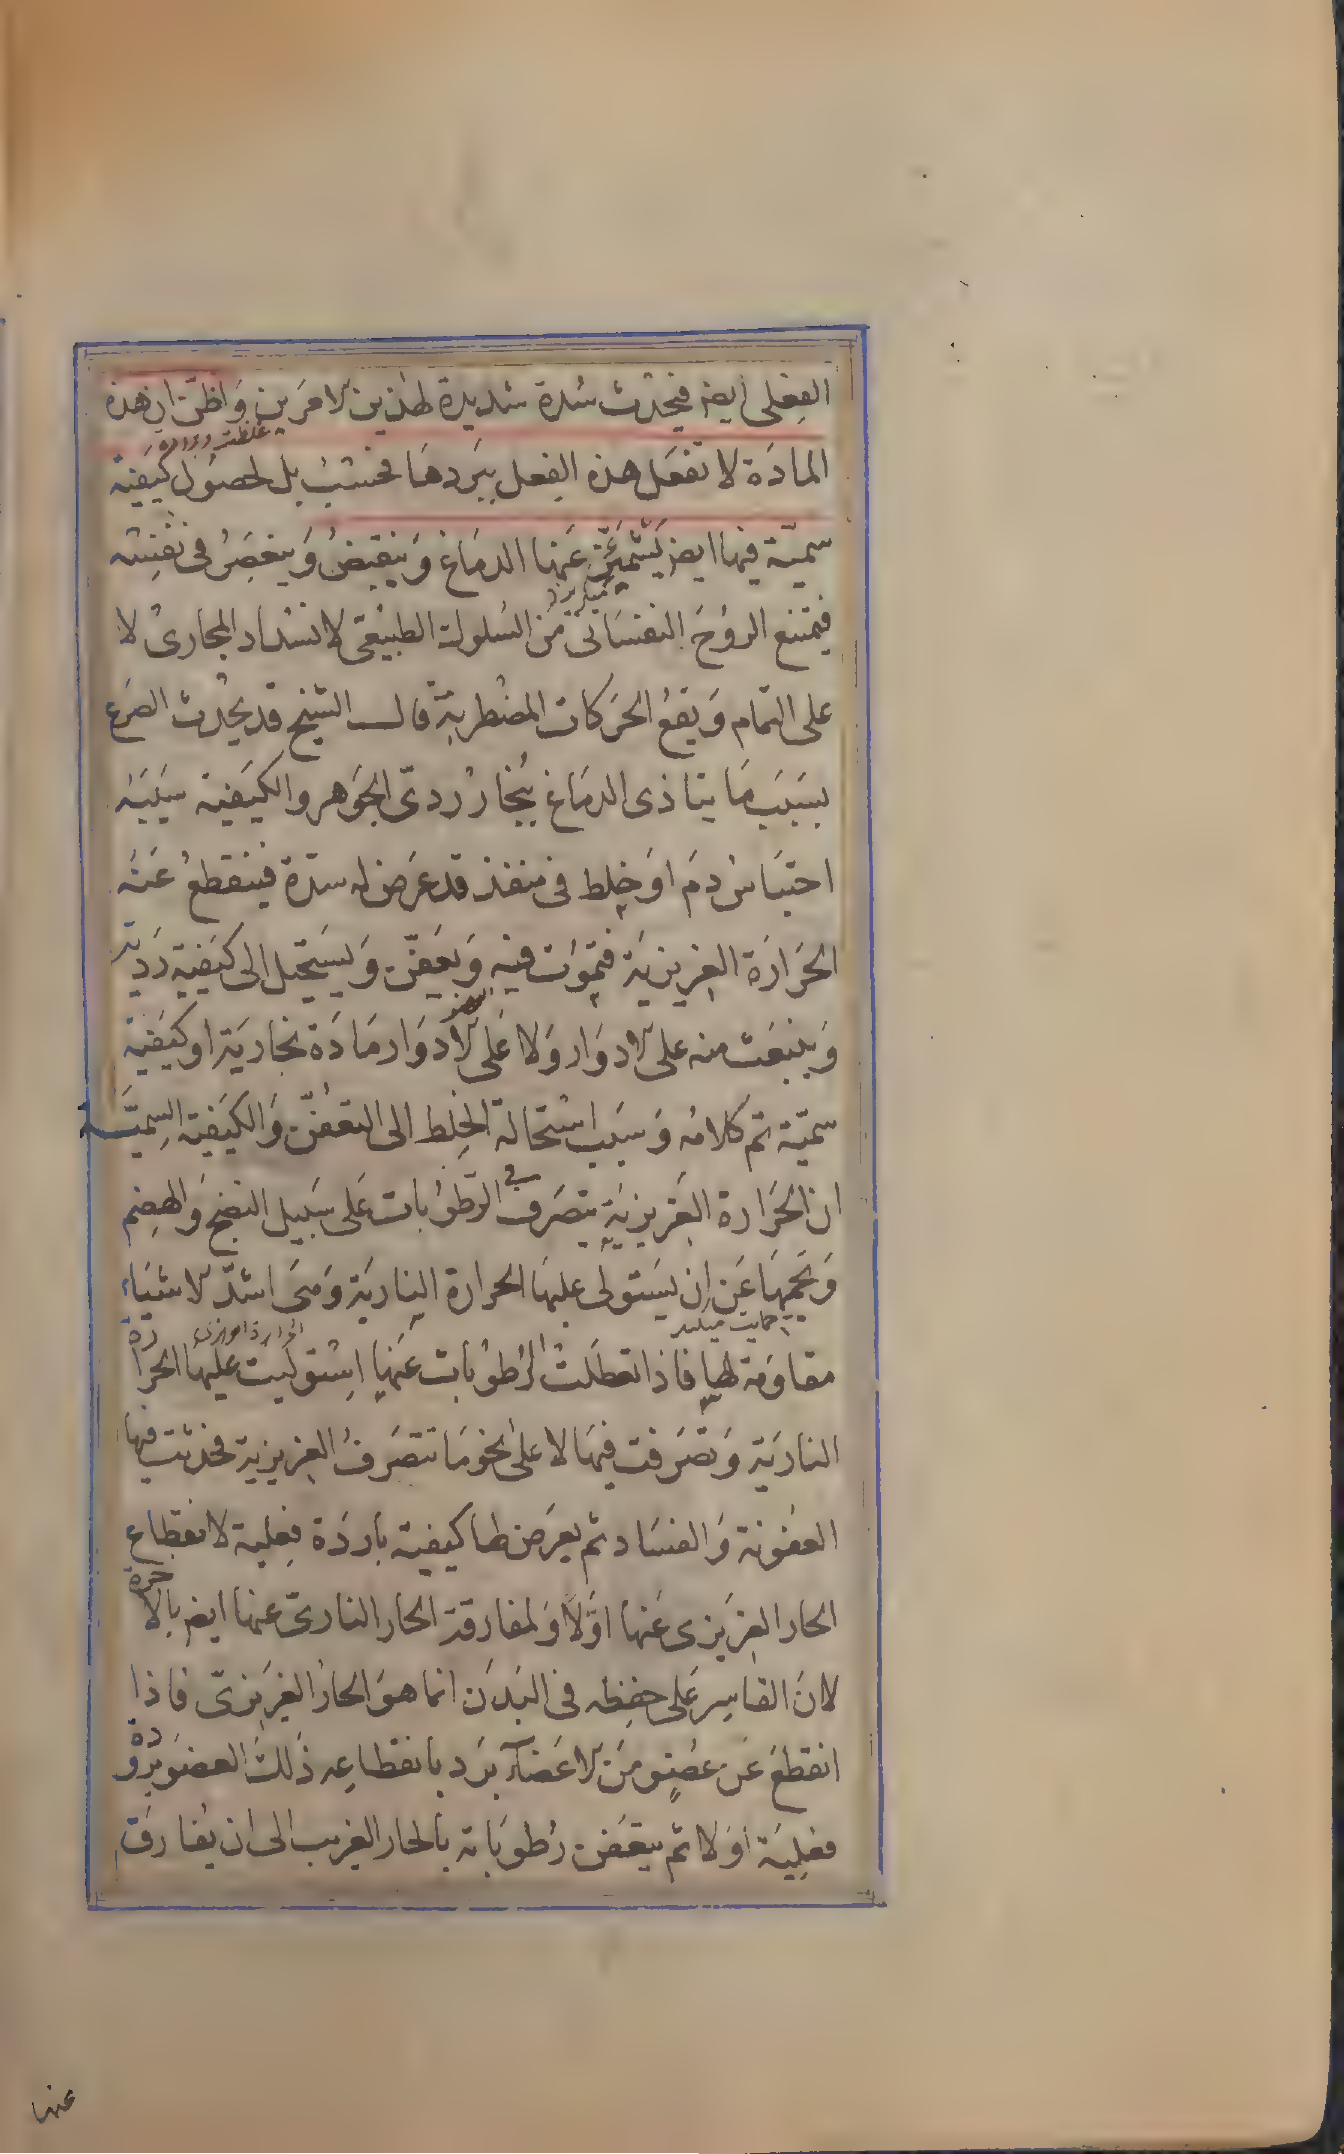 الفعلى ايضا فيحدث سدة شديدة لهذين الامرين واظن ان هذه
غلظت وبرودة
المادة لا تفعل هذه الفعل ببردها فحسب بل لحصول كيفية
سمية فيها ايضا يشمئز عنها الدماغ وينقبض ويعصر فى نفسه
ميكريزد
فيمتنع الروح النفسانى من السلوك الطبيعى لانسداد المجارى لا
على التمام ويقع الحركات المضطربة قال الشيخ قد يحدث الصرع
بسبب ما يتاذى الدماغ ببخار ردى الجوهر والكيفية سببه
احتباس دم او خلط فى منفذ قد عرض له سدة فينقطع عنه
الحرارة الغريزية فيموت فيه ويعفن ويستحيل الى كيفية ردية
وينبعث منه على الادوار ولا على الادوار مادة بخارية او كيفية
سمية تم كلامه وسبب استحالة الخلط الى التعفن والكيفية السمية
ان الحرارة الغريزية يتصرف فى الرطوبات على سبيل النضج والهضم
وتحميها عن ان يستولى عليها الحرارة النارية وهى اشد الاشياء
حمايت ميكند
مقاومة لها فاذا تعطلت الرطوبات عنها استولت عليها الحرارة
النارية وتصرفت فيها لا على نحو ما تتصرف الغريزية فحدثت فيها
العفونة والفساد ثم يعرض لها كيفية باردة فعلية لانقطاع
الحار الغريزى عنها اولا ولمفارقة الحار النارى عنها ايضا بالاخرة
لان القاسر على حفظه فى البدن انما هو الحار الغريزى فاذا
انقطع عن عضو من الاعضاء برد بانقطاعه ذلك العضو برودة
فعلية اولا ثم يتعفن رطوباته بالحار الغريب الى ان يفارق
عنها